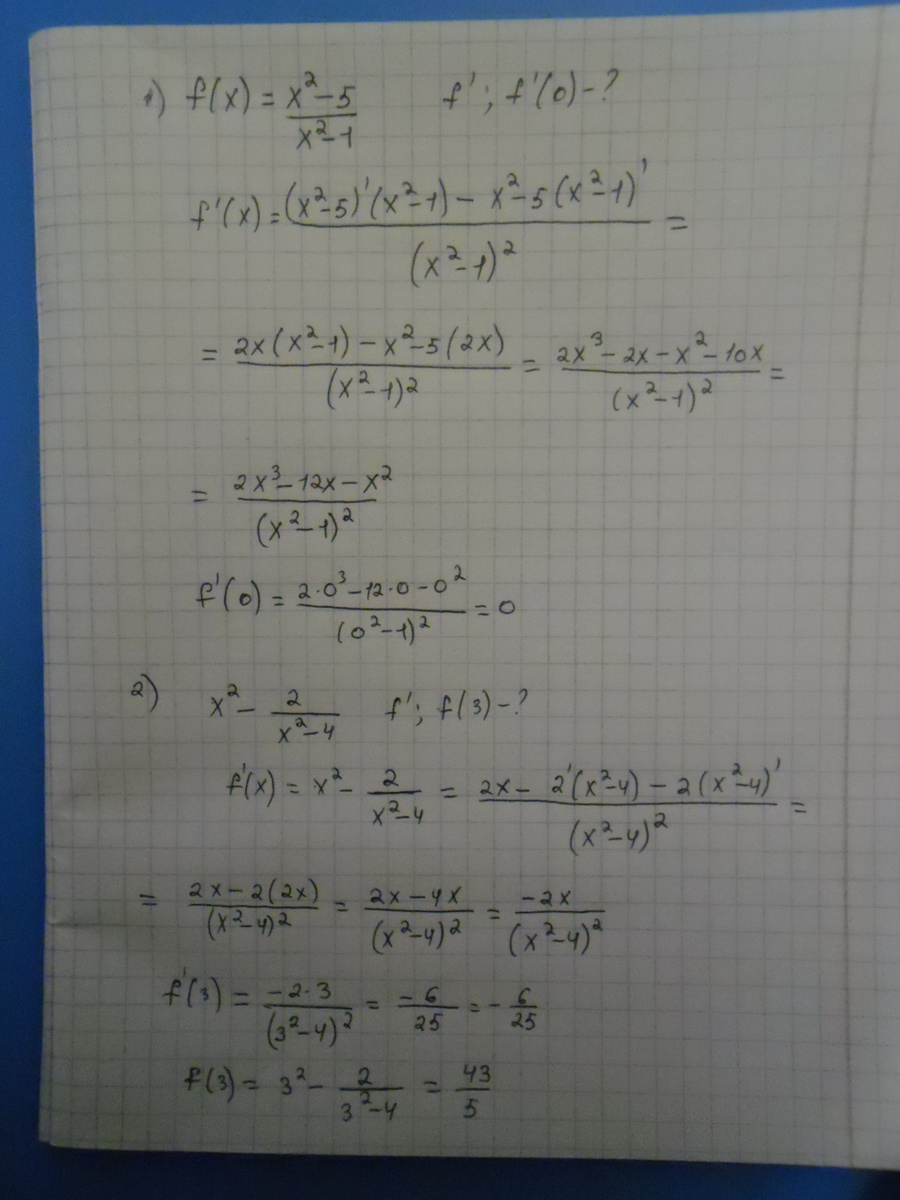 1) f(x) = (x²-5)/(x²-1)   f'; f'(0)-?
f'(x) = ((x²-5)'(x²-1) - x²-5(x²-1)')/(x²-1)² =
= (2x(x²-1) - x²-5(2x))/(x²-1)² = (2x³-2x-x²-10x)/(x²-1)² =
= (2x³-12x-x²)/(x²-1)²
f'(0) = (2·0³-12·0-0²)/(0²-1)² = 0
2) x² - 2/(x²-4)   f'; f(3)-?
f'(x) = x² - 2/(x²-4) = (2x - 2'(x²-4) - 2(x²-4)')/(x²-4)² =
= (2x-2(2x))/(x²-4)² = (2x-4x)/(x²-4)² = (-2x)/(x²-4)²
f'(3) = (-2·3)/(3²-4)² = (-6)/25 = -6/25
f(3) = 3² - 2/(3²-4) = 43/5